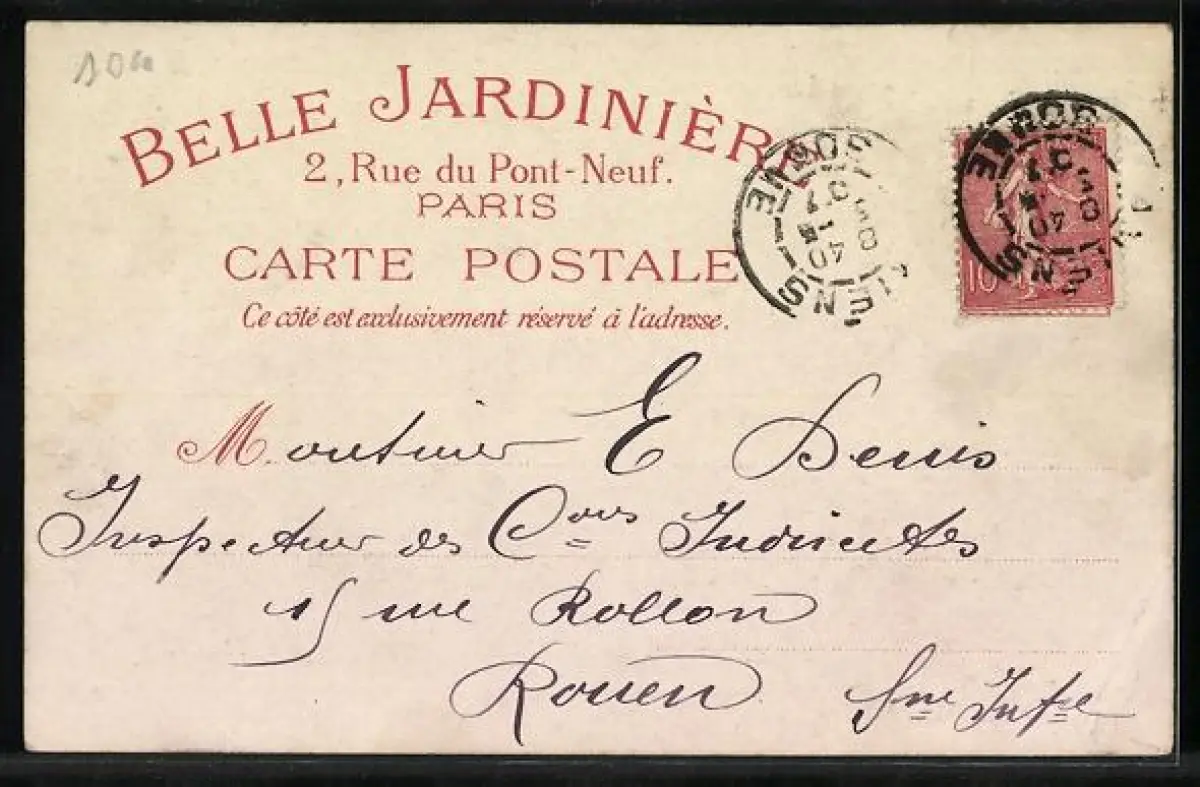 BELLE JARDINIÈRE
2, Rue du Pont-Neuf.
PARIS
CARTE POSTALE
Ce côté est exclusivement réservé à l'adresse.
Monsieur E Denis
Inspecteur des Cons Indirectes
15 rue Rollon
Rouen Sne Infre
AMIENS
SOMME
10